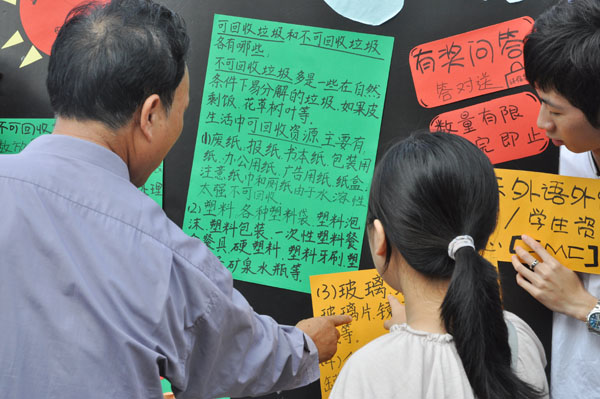 可回收垃圾和不可回收垃圾
各有哪些.
不可回收垃圾多是一些在自然
条件下易分解的垃圾.如果皮
剩饭、花草树叶等.
生活中可回收资源主要有
(1)废纸、报纸.书本纸、包装用
纸、办公用纸、广告用纸、纸盒.
注意纸巾和厕纸由于水溶性
太强不可回收.
(2)塑料.各种塑料袋.塑料泡
沫、塑料包装、一次性塑料餐
餐具硬塑料、塑料牙刷塑
矿泉水瓶等.
(3)玻璃
玻璃片.镜
等.
有奖问答
答对送
数量有限
完即止
外语外
/学生资